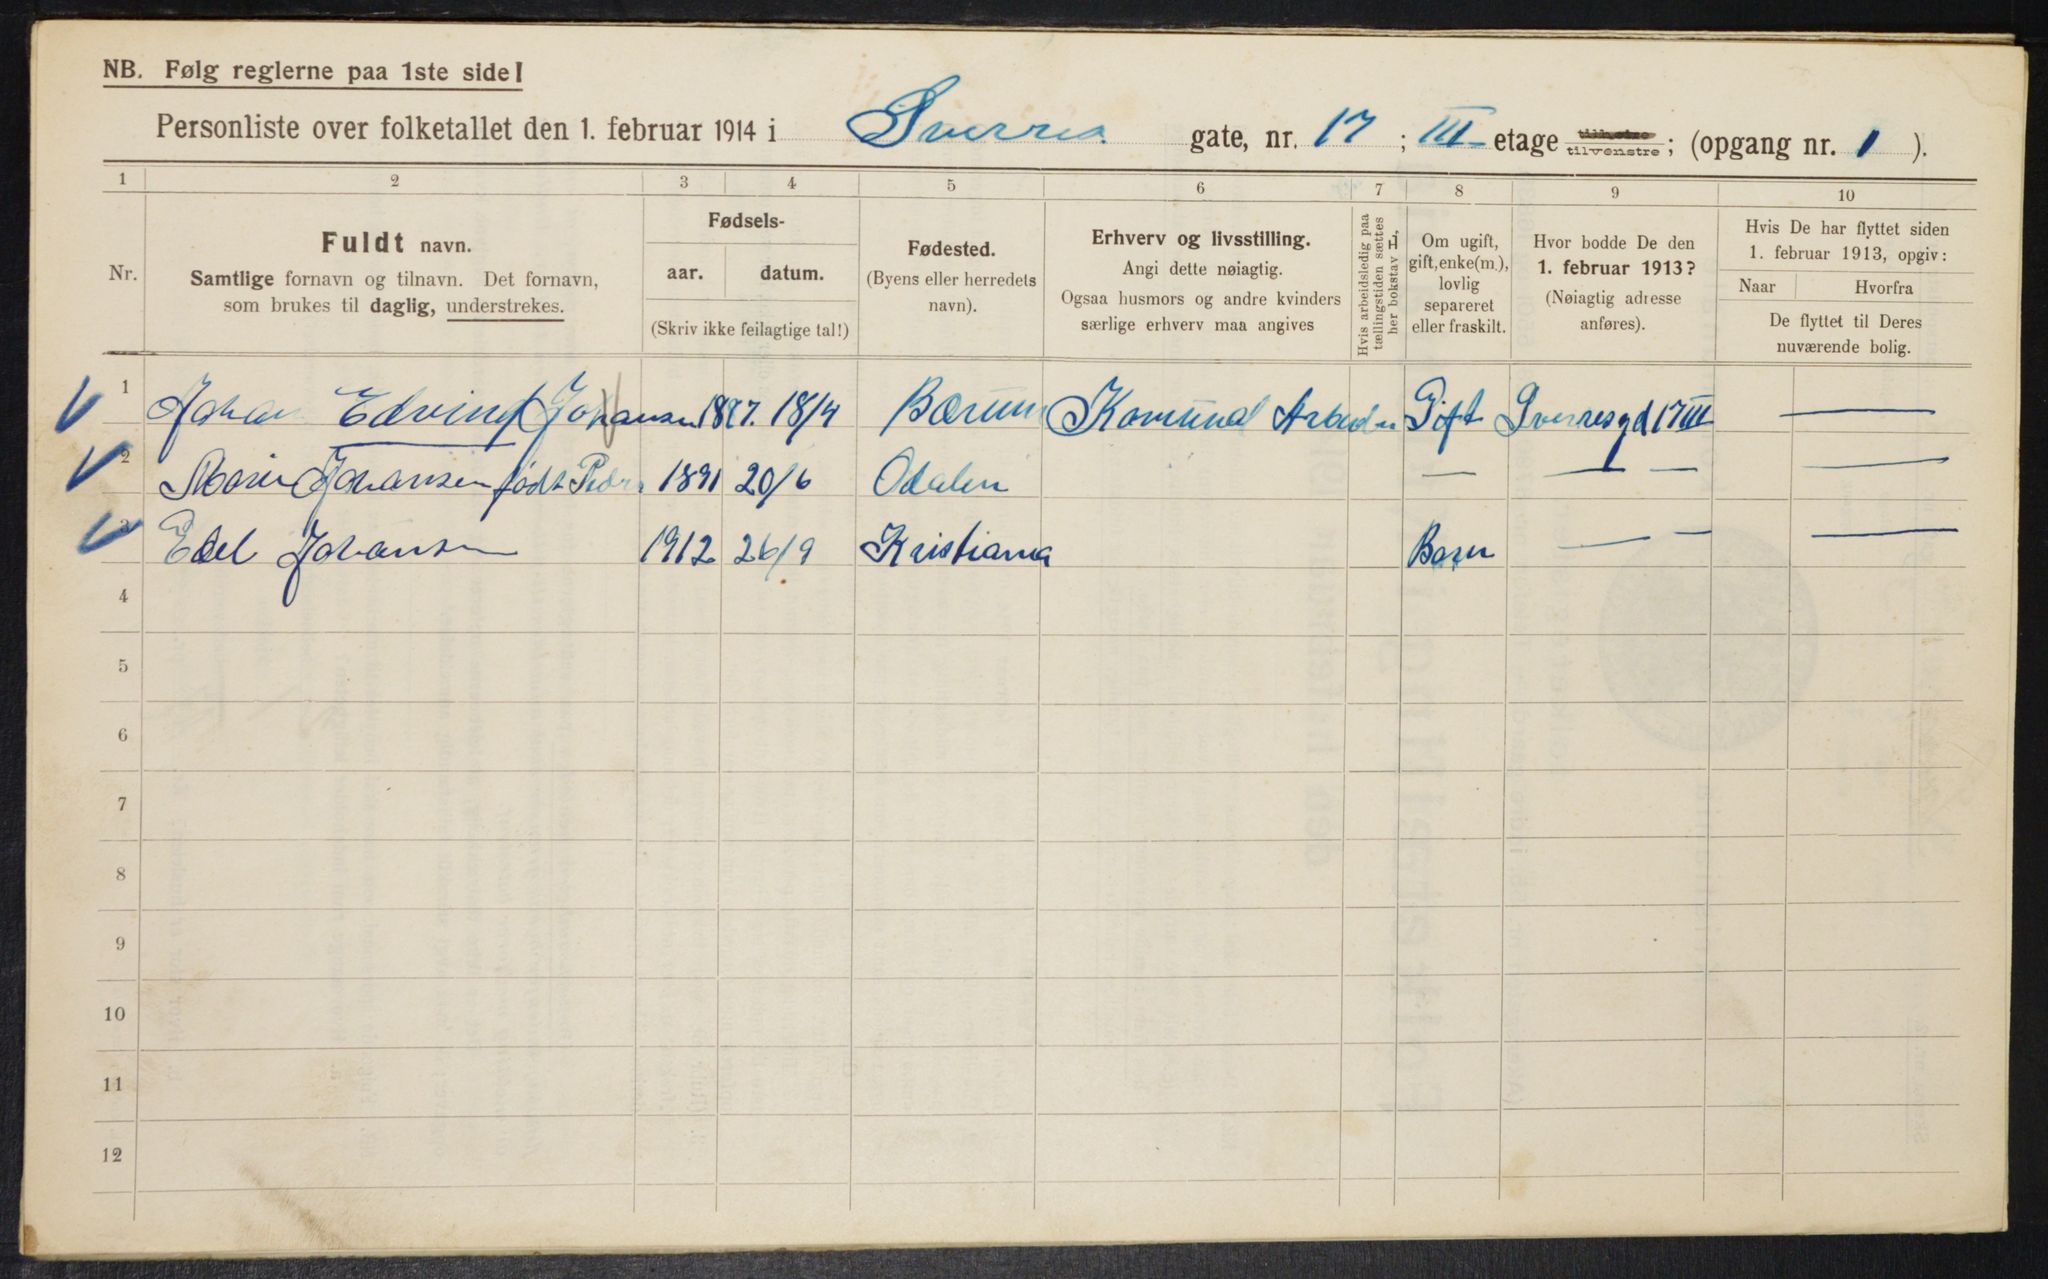 NB. Følg reglerne paa 1ste side!
Personliste over folketallet den 1. februar 1914 i Sverres gate, nr. 17; III etage tilhøire tilvenstre; (opgang nr. 1).
1 2 3 4 5 6 7 8 9 10
Nr.
Fuldt navn.
Samtlige fornavn og tilnavn. Det fornavn,
som brukes til daglig, understrekes.
Fødsels-
aar. datum.
(Skriv ikke feilagtige tal!)
Fødested.
(Byens eller herredets
navn).
Erhverv og livsstilling.
Angi dette nøiagtig.
Ogsaa husmors og andre kvinders
særlige erhverv maa angives
Hvis arbeidsledig paa
tællingstiden sættes
her bokstav L,
Om ugift,
gift, enke(m.),
lovlig
separeret
eller fraskilt.
Hvor bodde De den
1. februar 1913?
(Nøiagtig adresse
anføres).
Hvis De har flyttet siden
1. februar 1913, opgiv:
Naar Hvorfra
De flyttet til Deres
nuværende bolig.
1 Johan Edvind Johansen 18/4 Bærum Komunal Arbeider Gift Sverresgd 17 III —
2 Johansen født 1891 20/6 Odalen — — — —
3 Edel Johansen 1912 26/9 Kristiania Barn — — —
4
5
6
7
8
9
10
11
12